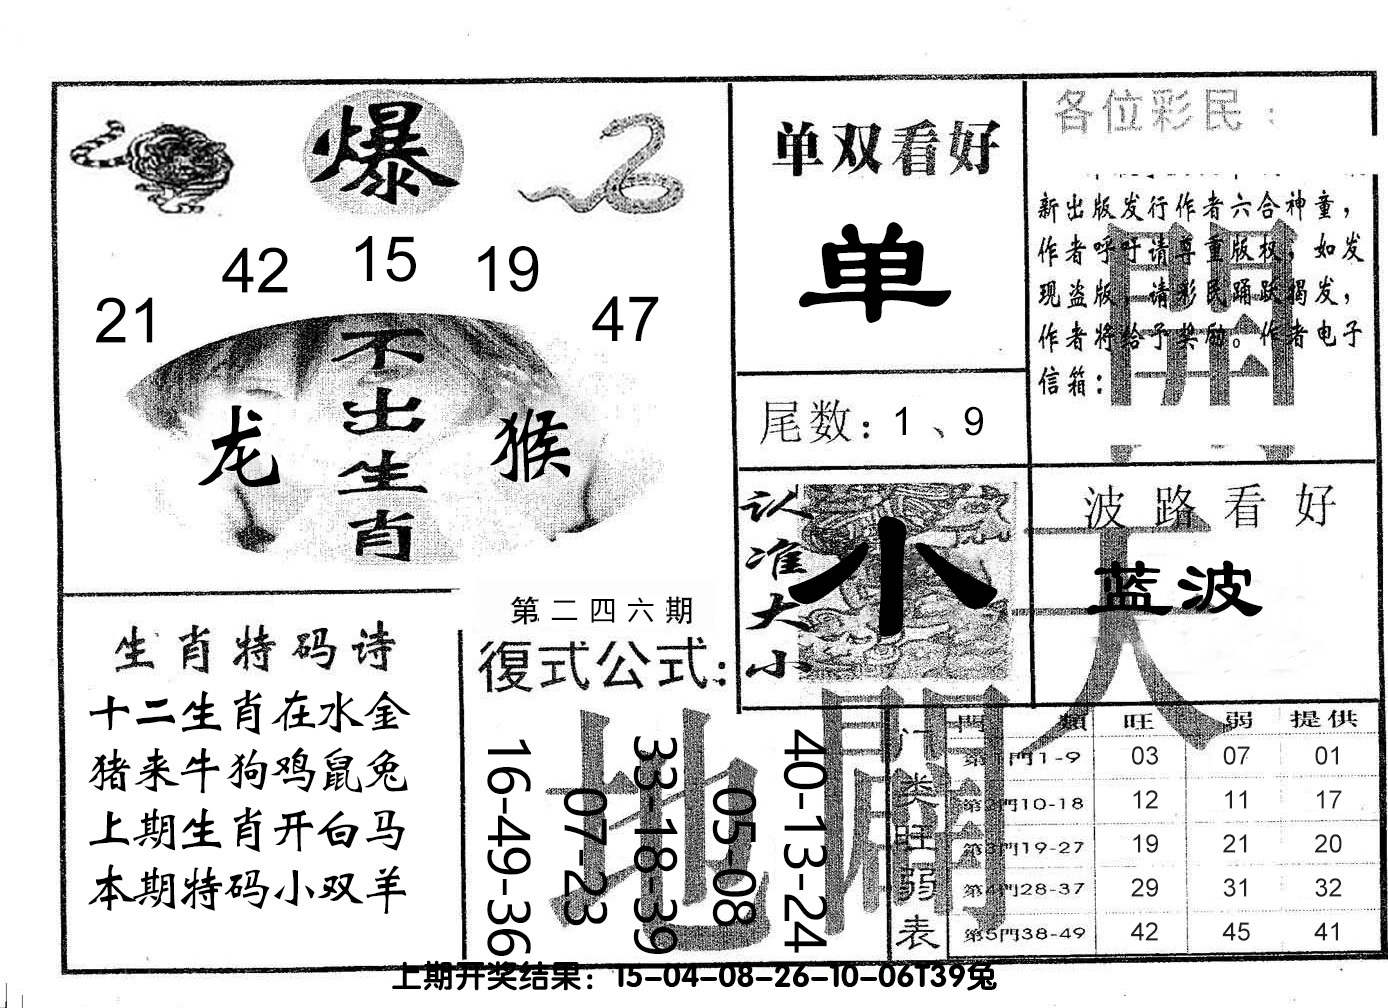 爆
42 15 19
21 47
不出生肖
龙 猴
单双看好
单
尾数：1、9
各位彩民：
新出版发行作者六合神童，
作者呼吁请尊重版权，如发
现盗版，请彩民踊跃揭发，
作者将给予奖励。作者电子
信箱：
认准大小
小
波路看好
蓝波
生肖特码诗
十二生肖在水金
猪来牛狗鸡鼠兔
上期生肖开白马
本期特码小双羊
第二四六期
復式公式：
16-49-36
07-23
33-18-39
05-08
40-13-24
天
地
開
門类旺弱表
門類 旺 弱 提供
第1門1-9 03 07 01
第2門10-18 12 11 17
第3門19-27 19 21 20
第4門28-37 29 31 32
第5門38-49 42 45 41
上期开奖结果：15-04-08-26-10-06T39兔